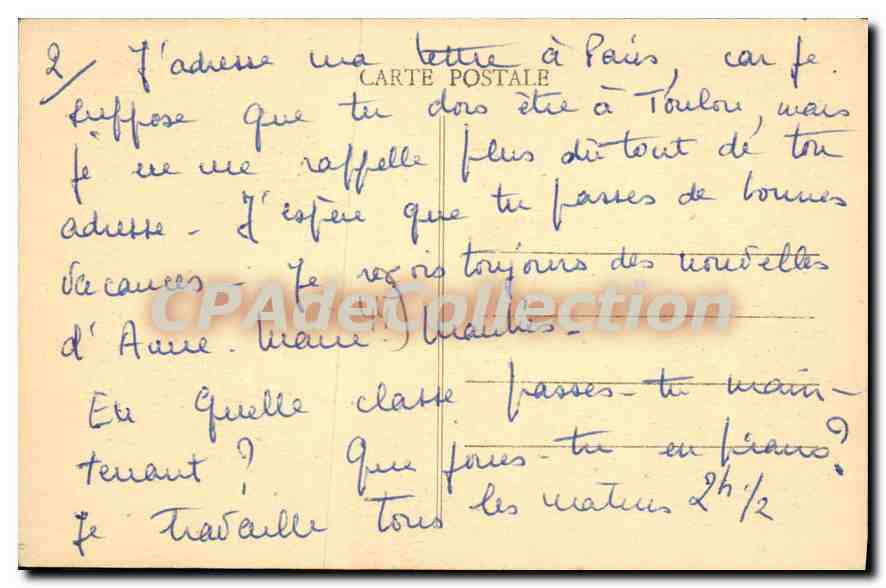 2/ J'adresse ma lettre à Paris, car je
CARTE POSTALE
suppose que tu dois être à Toulon, mais
je ne me rappelle plus du tout de ton
adresse - J'espère que tu passes de bonnes
vacances - Je reçois toujours des nouvelles
CPAdeCollection
d'Anne-Marie
En quelle classe passes-tu main-
tenant ? Que joues-tu en piano ?
Je travaille tous les matins 2h 1/2